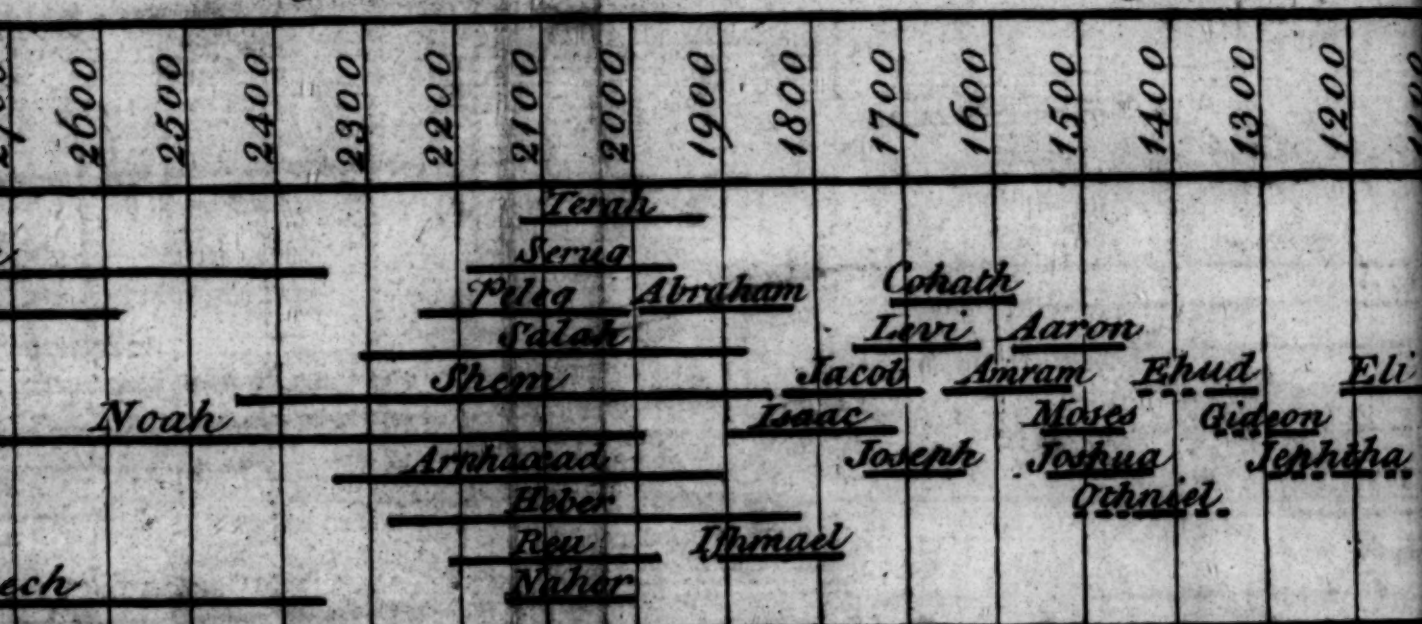 2600 2500 2400 2300 2200 2100 2000 1900 1800 1700 1600 1500 1400 1300 1200
Terah
Serug
Peleg Abraham Cohath
Salah Levi Aaron
Shem Jacob Amram Ehud Eli
Noah Isaac Moses Gideon
Arphaxad Joseph Joshua Jephtha
Heber Othniel
Reu Ishmael
ech Nahor